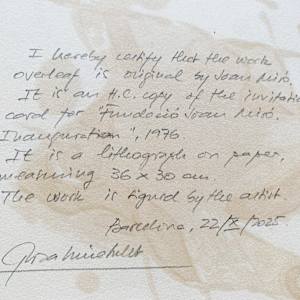 I hereby certify that the work
overleaf is original by Joan Miró.
It is an H.C. copy of the invitation
card for "Fundació Joan Miró.
Inauguration", 1976.
It is a lithograph on paper,
measuring 36 x 30 cm.
The work is signed by the artist.
Barcelona, 22/X/2025.